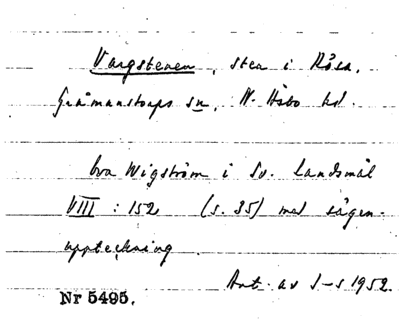 Vargstenen, sten i Råsa,
Gråmanstorps sn, N. Åsbo hd.
Eva Wigström i Sv. landsmål
VIII : 152 (s. 35) med sägen-
uppteckning.
Ant. av S-s 1952.
Nr 5495.